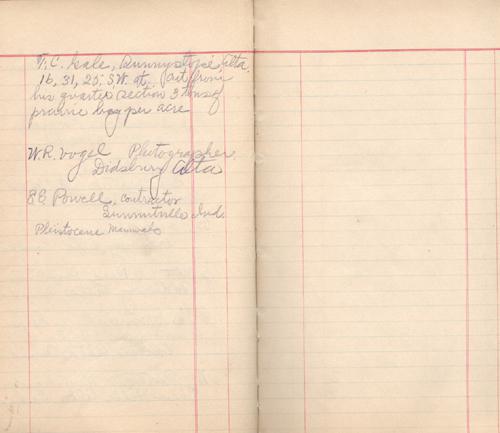 T. C. Gale, Sunnyslope Alta.
16, 31, 25, S.W. at. Part from
his quarter section 3 tons of
prairie hay per acre
W.R. Vogel Photographer.
Didsbury Alta
Powell, contractor
Summitville Ind.
Pleistocene Mammals